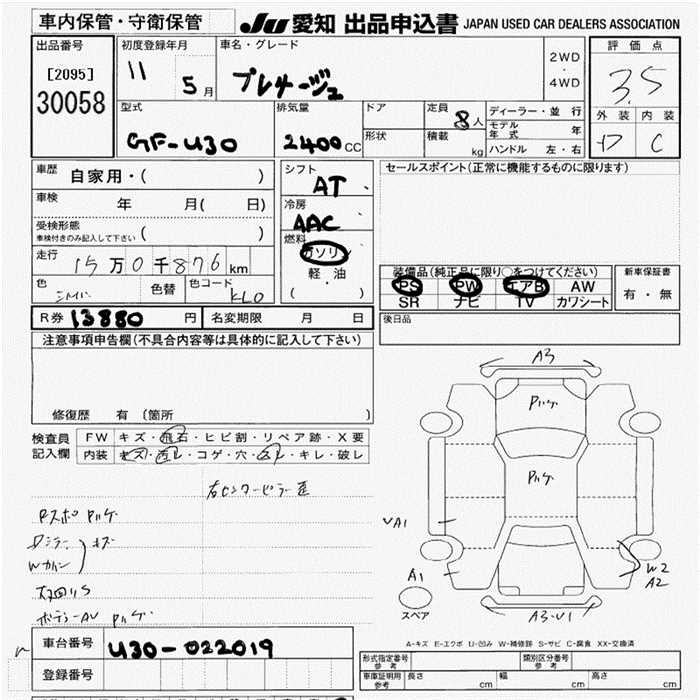 車内保管・守衛保管
JU 愛知 出品申込書 JAPAN USED CAR DEALERS ASSOCIATION
出品番号
[2095]
30058
初度登録年月
11 5月
車名・グレード
プレサージュ
2WD
・
4WD
評価点
3.5
外装 内装
C
型式
GF-U30
排気量
2400cc
ドア
形状
定員 8人
積載 kg
ディーラー・並行
モデル年式 年
ハンドル 左・右
車歴
自家用・( )
車検
年 月( 日)
受検形態
車検付きのみ記入して下さい ( )
走行
15万0千876km
色
シルバー
色替
色コード
KL0
シフト
AT
冷房
AAC
燃料
ガソリン
軽・油
( )
セールスポイント(正常に機能するものに限ります)
装備品(純正品に限り○をつけてください)
PS PW エアB AW
SR ナビ TV カワシート
新車保証書
有・無
R券 13880円
名変期限 月 日
後日品
注意事項申告欄(不具合内容等は具体的に記入して下さい)
修復歴 有 〔箇所 〕
検査員記入欄
FW キズ・飛石・ヒビ割・リペア跡・X要
内装 キズ・汚レ・コゲ・穴・スレ・キレ・破レ
右センターピラー歪
Rスポ Pハゲ
Dミラー
Wカバー
キズ
ボデーAU Pハゲ
A3
Pハゲ
Pハゲ
UA1
A1
スペア
A3-U1
W2
A2
A-キズ E-エクボ U-凹み W-補修跡 S-サビ C-腐食 XX-交換済
車台番号
U30-022019
登録番号
形式指定番号 参考
類別区分番号 参考
車庫証明用 参考
長さ cm
幅 cm
高さ cm